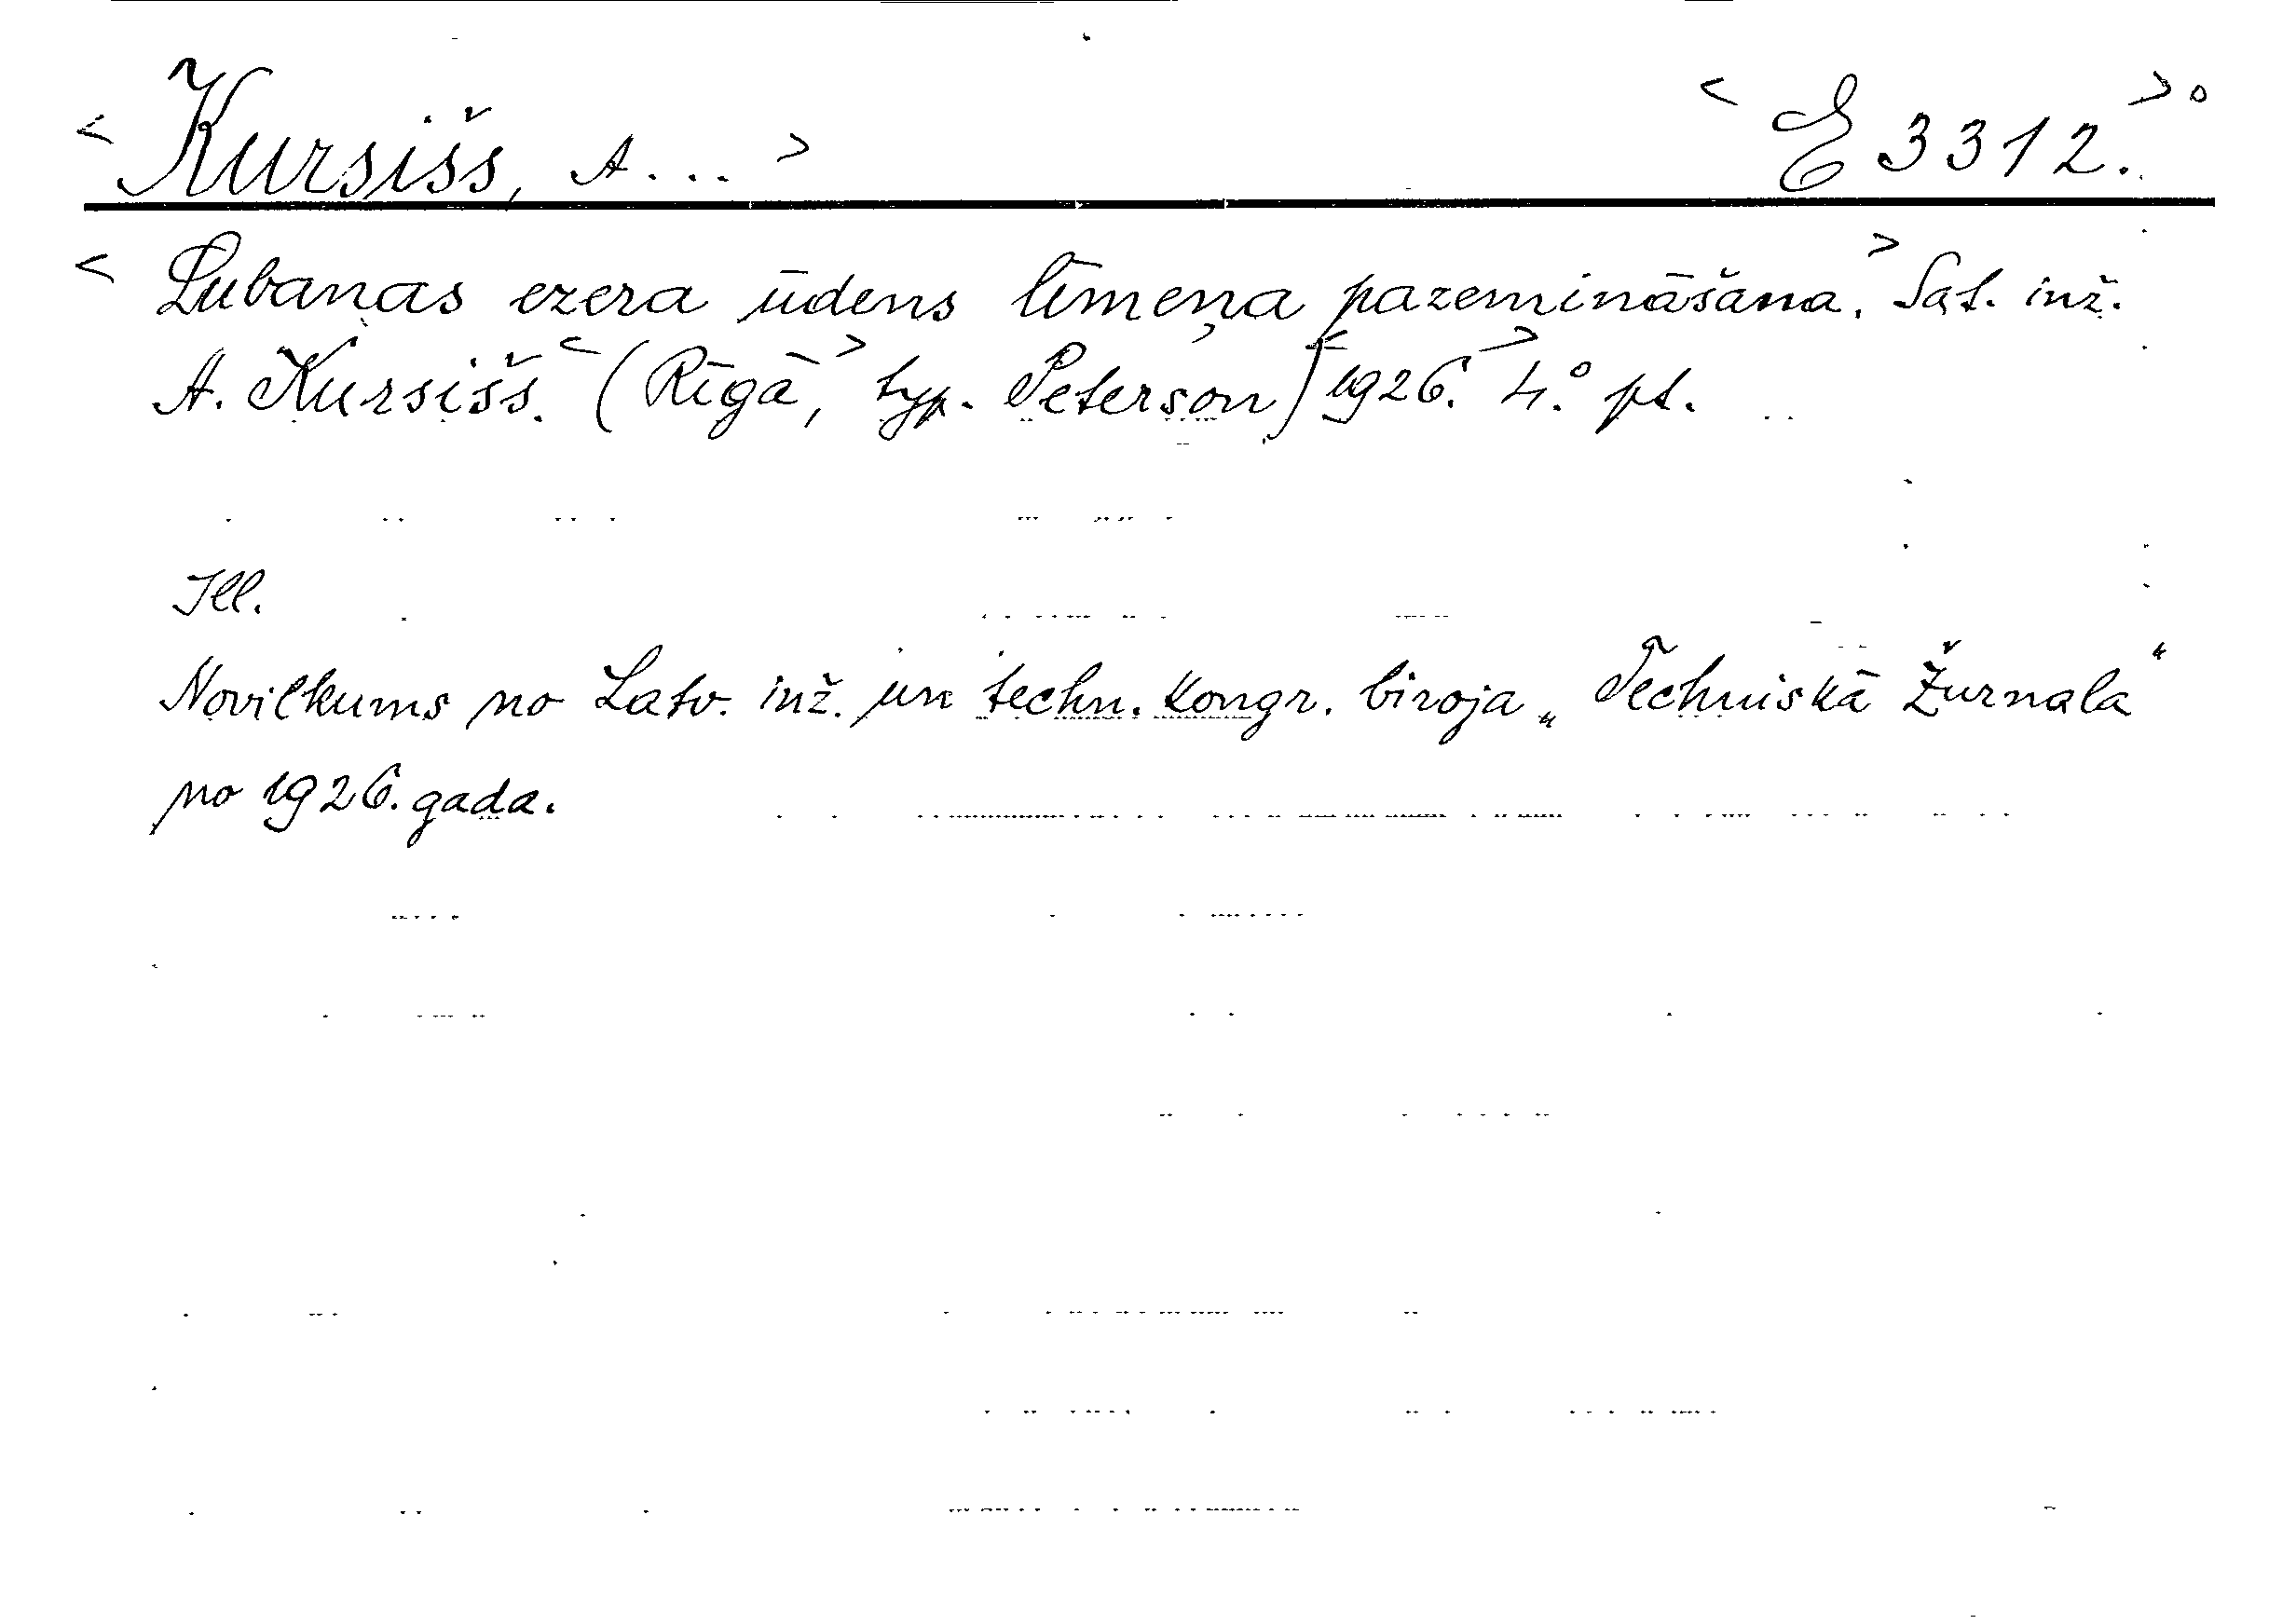 <Kursišs, A...> <E 3312.>°
<Lubaņas ezera ūdens līmeņa pazemināšana.> Sast. inž.
A. Kursišs. <(Rīgā,> typ. Peterson) <1926.> 4.° pt.
Ill.
Novilkums no Latv. inž. un techn. kongr. biroja „Techniskā Žurnala“
no 1926. gada.